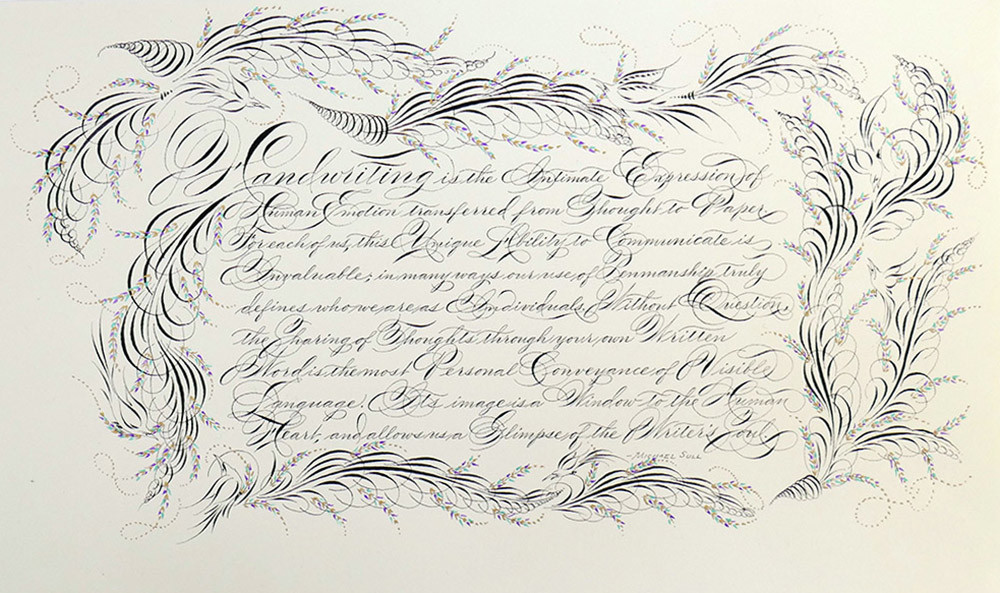 Handwriting is the Intimate Expression of
Human Emotion transferred from Thought to Paper.
For each of us, this Unique Ability to Communicate is
Invaluable; in many ways our use of Penmanship truly
defines who we are as Individuals. Without Question,
the Sharing of Thoughts through your own Written
Word is the most Personal Conveyance of Visible
Language. Its image is a Window to the Human
Heart, and allows us a Glimpse of the Writer's Soul.
~ MICHAEL SULL